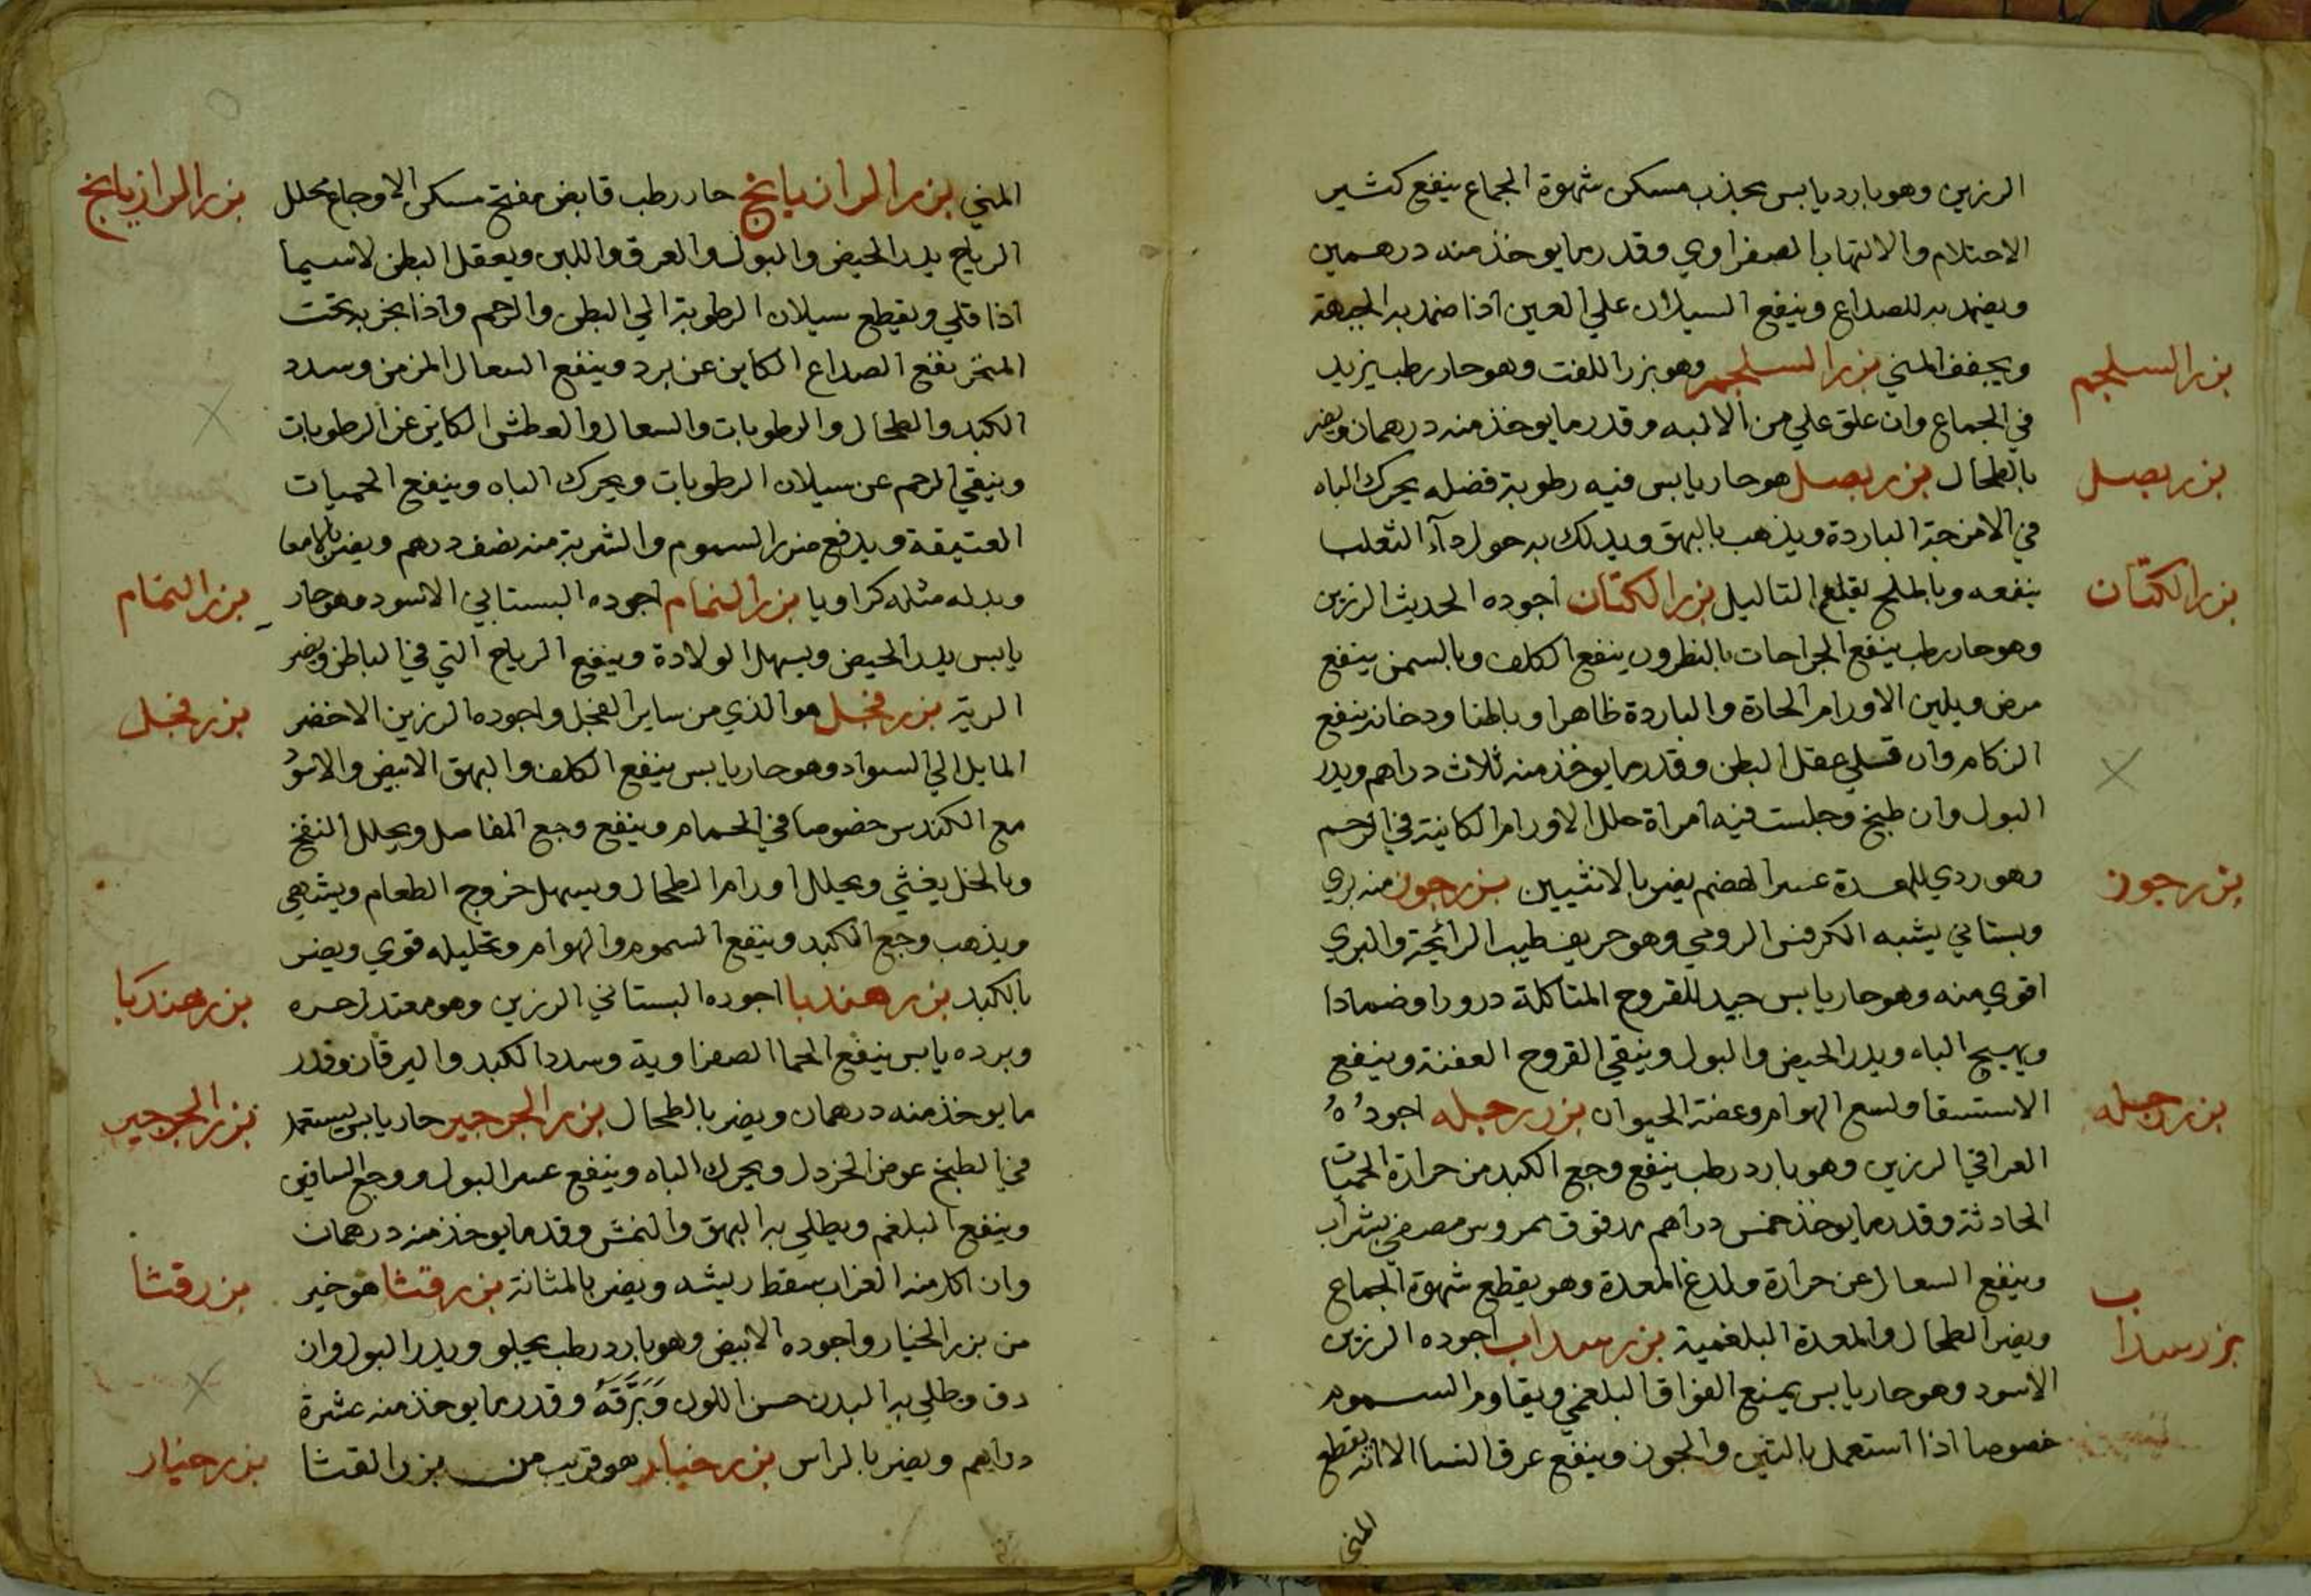 الرزين وهو بارد يابس يجذب مسكن شهوة الجماع ينفع كثير
الاحتلام والالتهاب الصفراوي وقدر ما يوخذ منه درهمين
ويضمد به للصداع وينفع السيلان علي العين اذا ضمد به الجبهة
ويجفف المني بزر السلجم وهو بزر اللفت وهو حار رطب يزيد
بزر السلجم
في الجماع وان علق علي من الالبه وقدر ما يوخذ منه درهمان ويضر
بالطحال بزر بصل هو حار يابس فيه رطوبة فضله يحرك الباه
بزر بصل
في الامزجة الباردة ويذهب بالبهق ويدلك به حول دآء الثعلب
ينفعه وبالملح يقلع التاليل بزر الكتان اجوده الحديث الرزين
بزر الكتان
وهو حار رطب ينفع الجراحات بالنطرون ينفع الكلف وبالسمن ينفع
مرض ويلين الاورام الحادة والباردة ظاهرا وباطنا ودخانه ينفع
الزكام وان قلي عقل البطن وقدر ما يوخذ منه ثلاث دراهم ويدر
البول وان طبخ وجلست فيه امراة حلل الاورام الكاينة في الرحم
وهو ردي للمعدة عسر الهضم يضر بالانثيين بزر جوز منه بري
بزر جوز
وبستاني يشبه الكرفس الرومي وهو حريف طيب الرائحة والبري
اقوي منه وهو حار يابس جيد للقروح المتاكلة درورا وضمادا
ويهيج الباه ويدر الحيض والبول وينقي القروح العفنة وينفع
الاستسقا ولسع الهوام وعضة الحيوان بزر رجله اجوده
بزر رجله
العراقي الرزين وهو بارد رطب ينفع وجع الكبد من حرارة الحميات
الحادثة وقدر ما يوخذ خمس دراهم مدقوق ممروس مصفي بشراب
وينفع السعال عن حرارة ولدغ المعدة وهو يقطع شهوة الجماع
ويضر الطحال والمعدة البلغمية بزر سداب اجوده الرزين
بزر سداب
الاسود وهو حار يابس يمنع الفواق البلغمي ويقاوم السموم
خصوصا اذا استعمل بالتين والجوز وينفع عرق النسا الا انه يقطع
المني
المني بزر الرازيانج حار رطب قابض مفتح مسكن الاوجاع محلل
بزر الرازيانج
الرياح يدر الحيض والبول والعرق واللبن ويعقل البطن لاسيما
اذا قلي ويقطع سيلان الرطوبة الي البطن والرحم واذا بخر به تحت
المنخر نفع الصداع الكاين عن برد وينفع السعال المزمن وسدد
الكبد والطحال والرطوبات والسعال والعطش الكاين عن الرطوبات
وينقي الرحم عن سيلان الرطوبات ويحرك الباه وينفع الحميات
العتيقة ويدفع ضرر السموم والشربة منه نصف درهم ويضر بالامعا
وبدله مثله كراويا بزر النمام اجوده البستاني الاسود وهو حار
بزر النمام
يابس يدر الحيض ويسهل الولادة وينفع الرياح التي في الباطن ويضر
الرية بزر فجل هو الذي من ساير الفجل واجوده الرزين الاخضر
بزر فجل
المايل الي السواد وهو حار يابس ينفع الكلف والبهق الابيض والاسود
مع الكندس خصوصا في الحمام وينفع وجع المفاصل ويحلل النفخ
وبالخل يغثي ويحلل اورام الطحال ويسهل خروج الطعام ويشهي
ويذهب وجع الكبد وينفع السموم والهوام وتحليله قوي ويضر
بالكبد بزر هندبا اجوده البستاني الرزين وهو معتدل حره
بزر هندبا
وبرده يابس ينفع الحما الصفراوية وسدد الكبد واليرقان وقدر
ما يوخذ منه درهمان ويضر بالطحال بزر الجرجير حار يابس يستعمل
بزر الجرجير
في الطبخ عوض الخردل ويحرك الباه وينفع عسر البول ووجع الساقين
وينفع البلغم ويطلي به البهق والنمش وقدر ما يوخذ منه درهمان
وان اكل منه الغراب سقط ريشه ويضر بالمثانة بزر قتثا هو خير
بزر قتثا
من بزر الخيار واجوده الابيض وهو بارد رطب يجلو ويدر البول وان
دق وطلي به البدن حسن اللون وَبَرَّقَهُ وقدر ما يوخذ منه عشرة
دراهم ويضر بالراس بزر خيار هو قريب من بزر القتثا
بزر خيار